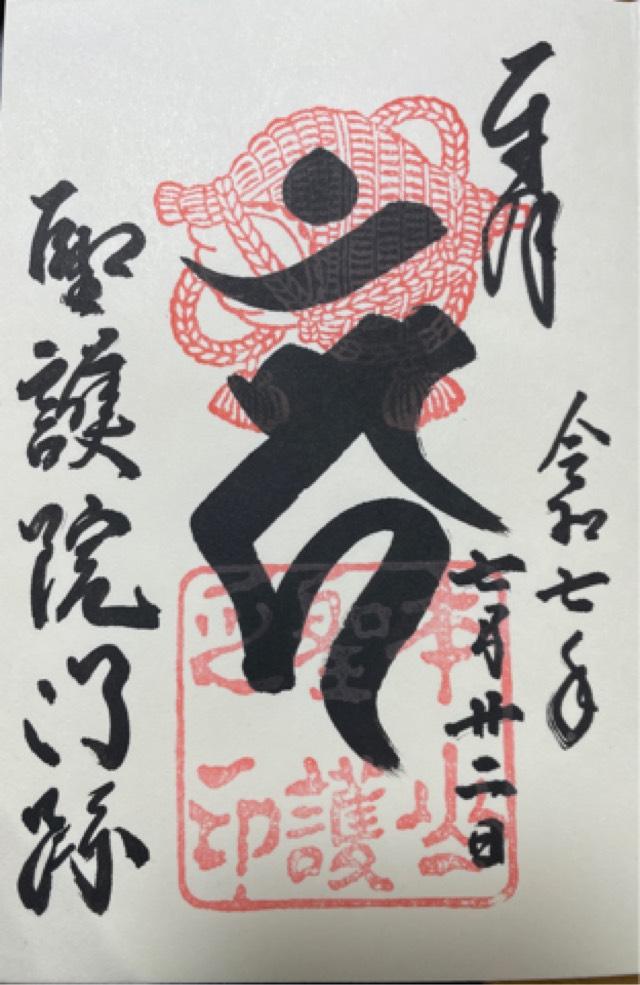 奉拝
令和七年
七月廿二日
本山
聖護
之印
聖護院門跡